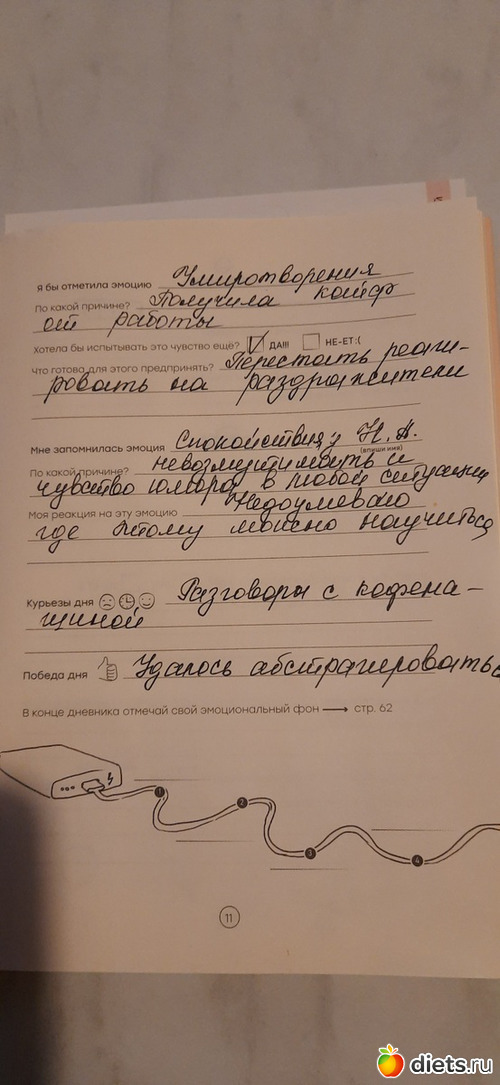 Я бы отметила эмоцию Умиротворения
По какой причине? Получила кайф
от работы
Хотела бы испытывать это чувство ещё? ДА!!! НЕ-ЕТ:(
Что готова для этого предпринять? Перестать реаги-
ровать на раздражители
Мне запомнилась эмоция Спокойствия у Н. А.
(впиши имя)
По какой причине? невозмутимость и
чувство юмора в любой ситуации
Моя реакция на эту эмоцию Недоумеваю
где этому можно научиться
Курьезы дня Разговоры с кофена-
щиной
Победа дня Удалось абстрагироваться
В конце дневника отмечай свой эмоциональный фон стр. 62
1
2
3
4
11
diets.ru